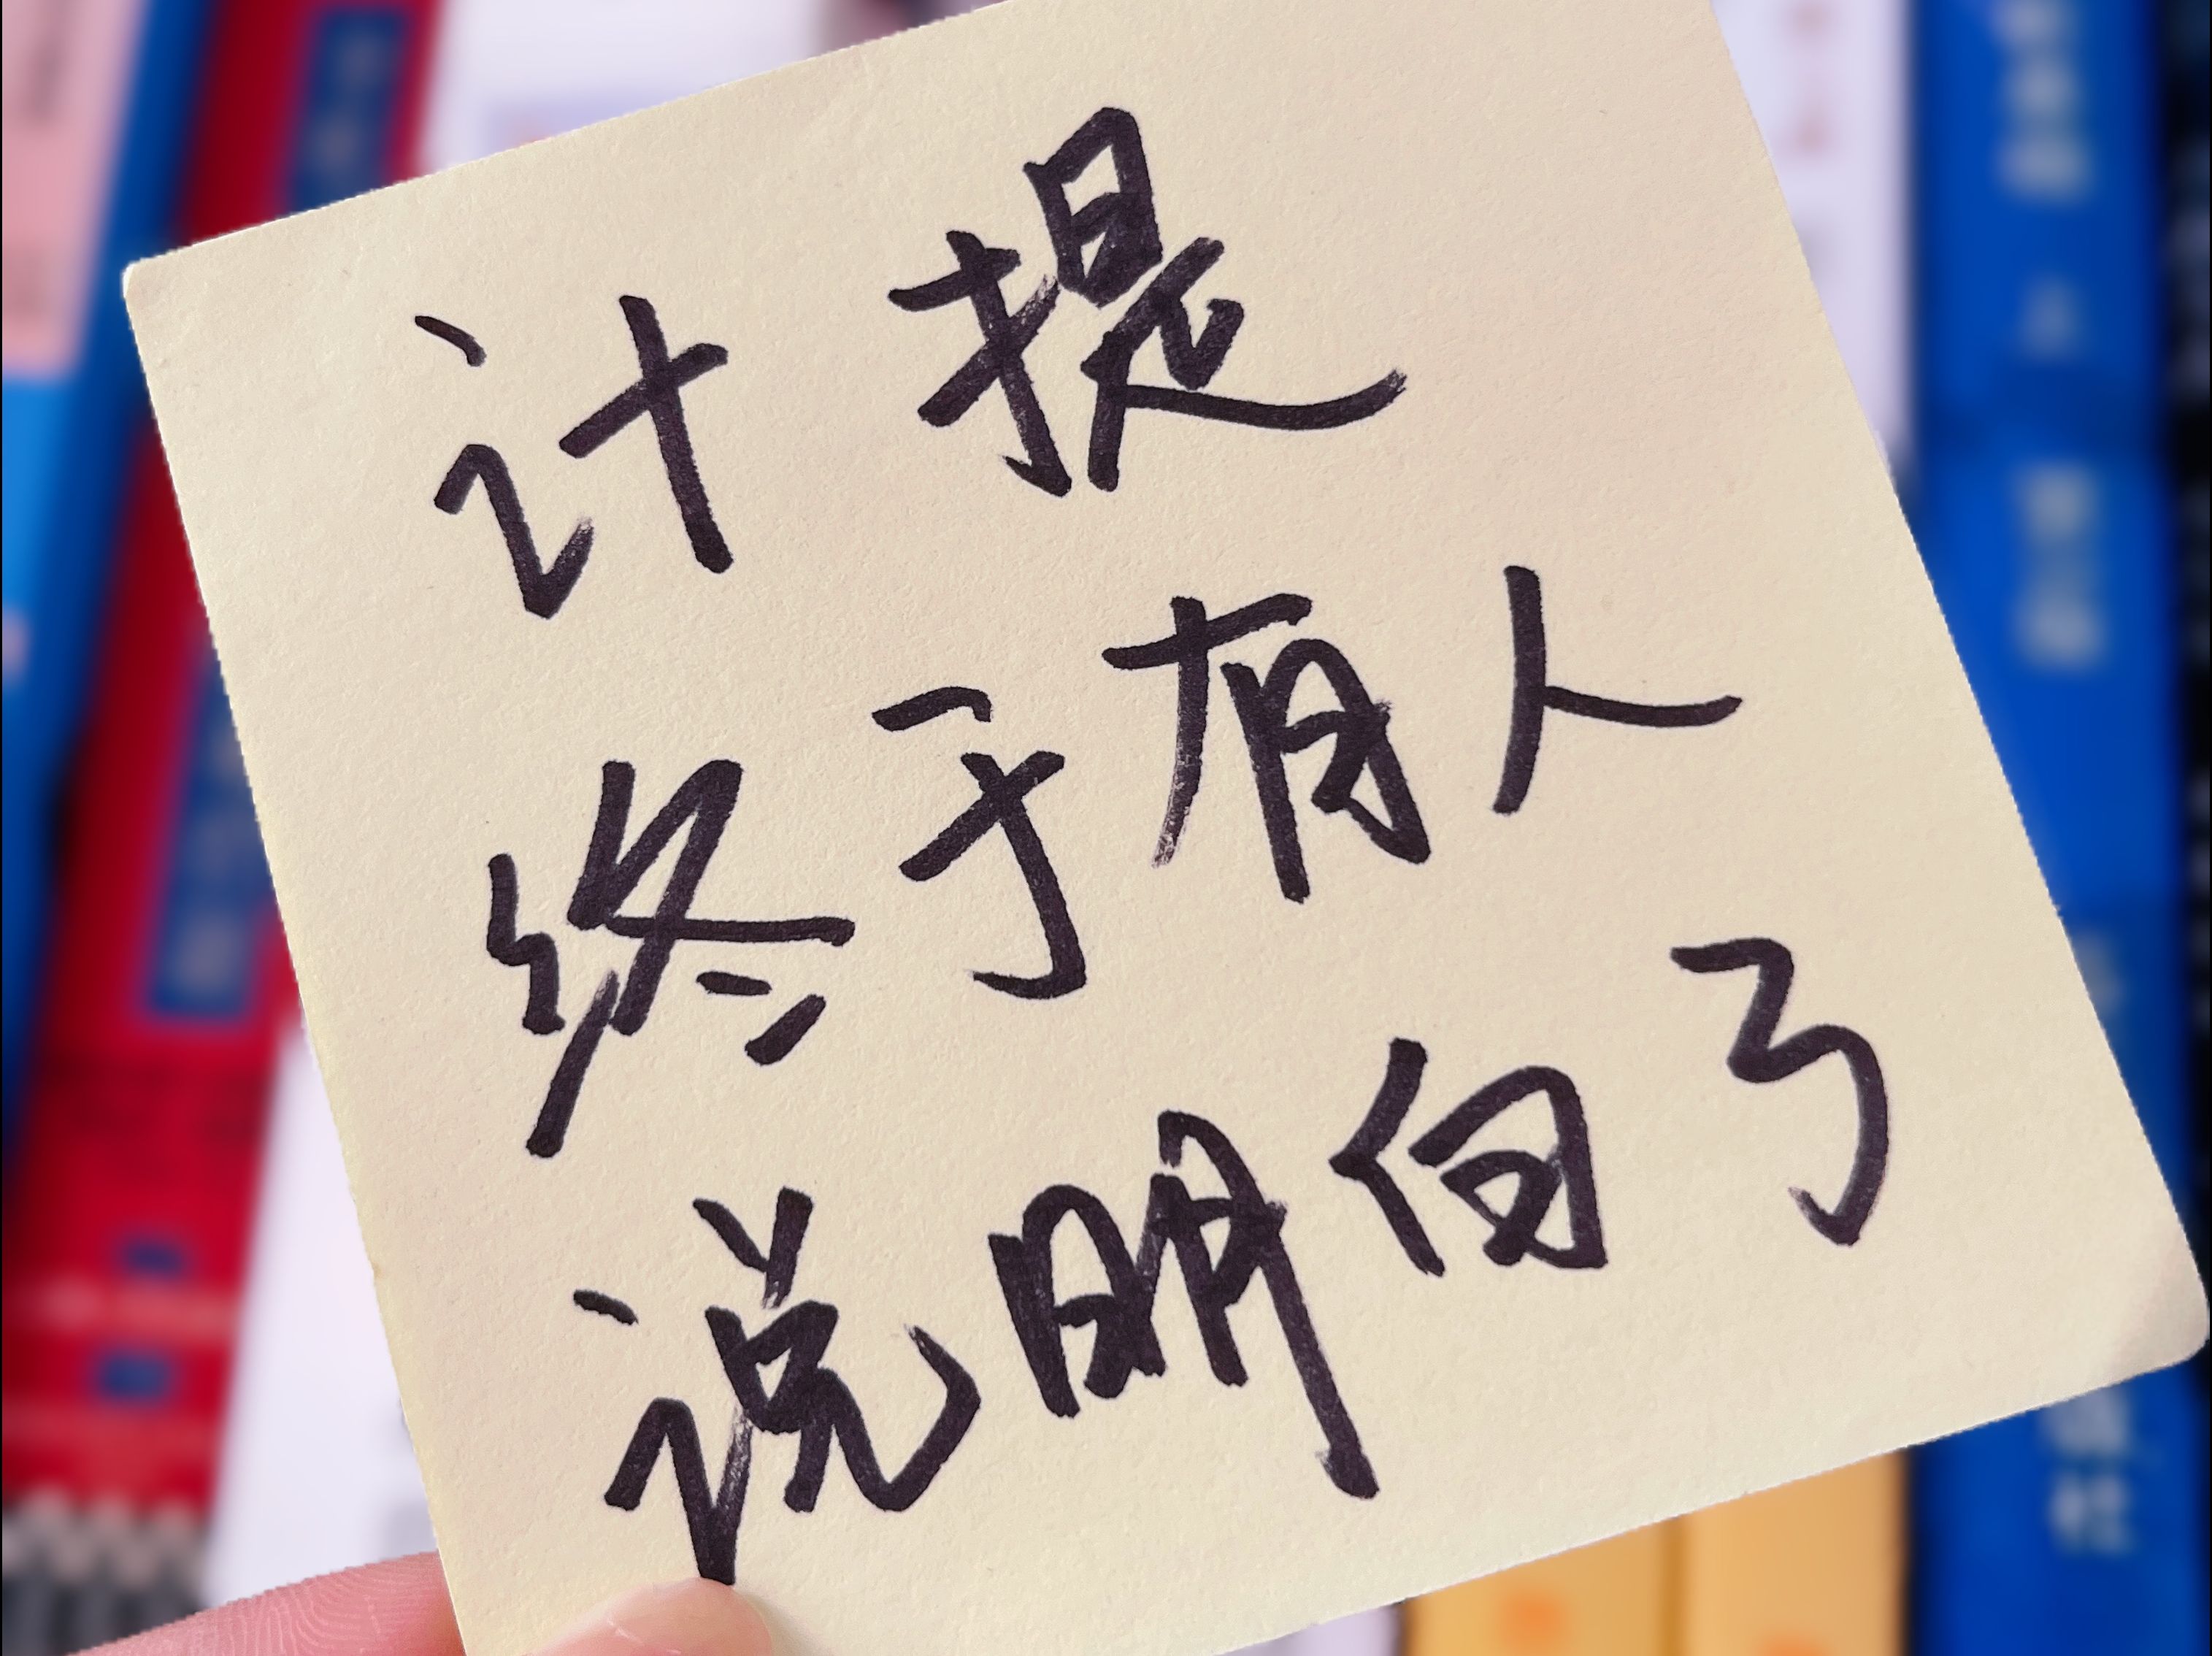 计提
终于有人
说明白了